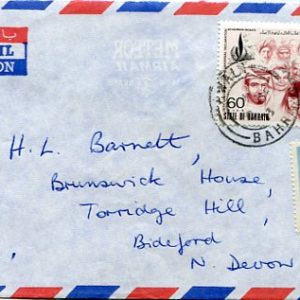 IL
ON
METEOR
60
STATE OF BAHRAIN
BAHR
H. L. Barnett,
Brunswick House,
Torridge Hill,
Bideford
N. Devon